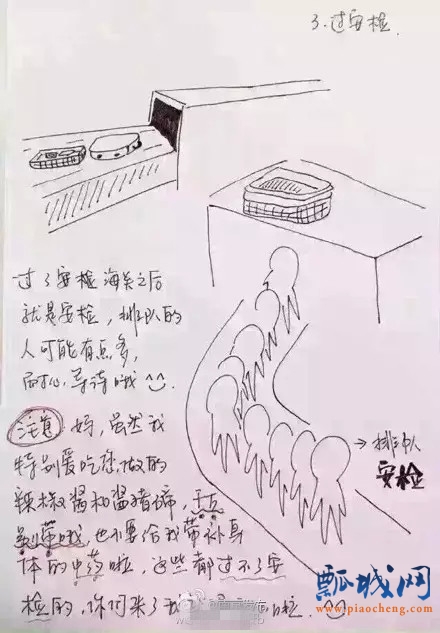 3.过安检.
过了安检海关之后
就是安检，排队的
人可能有点多，
耐心等待哦
注意 妈，虽然我
特别爱吃您做的
辣椒酱和酱猪蹄，千万
别带哦，也不要给我带补身
体的中药啦，这些都过不了安
检的，你们来了我 啦.
→排队
安检
瓢城网
www.piaocheng.com